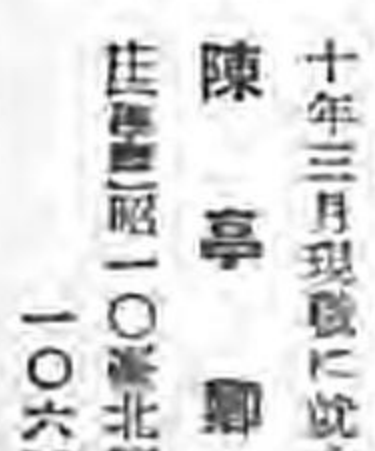 十年三月現職に就
陳亭卿
昭一〇臺北
一〇六